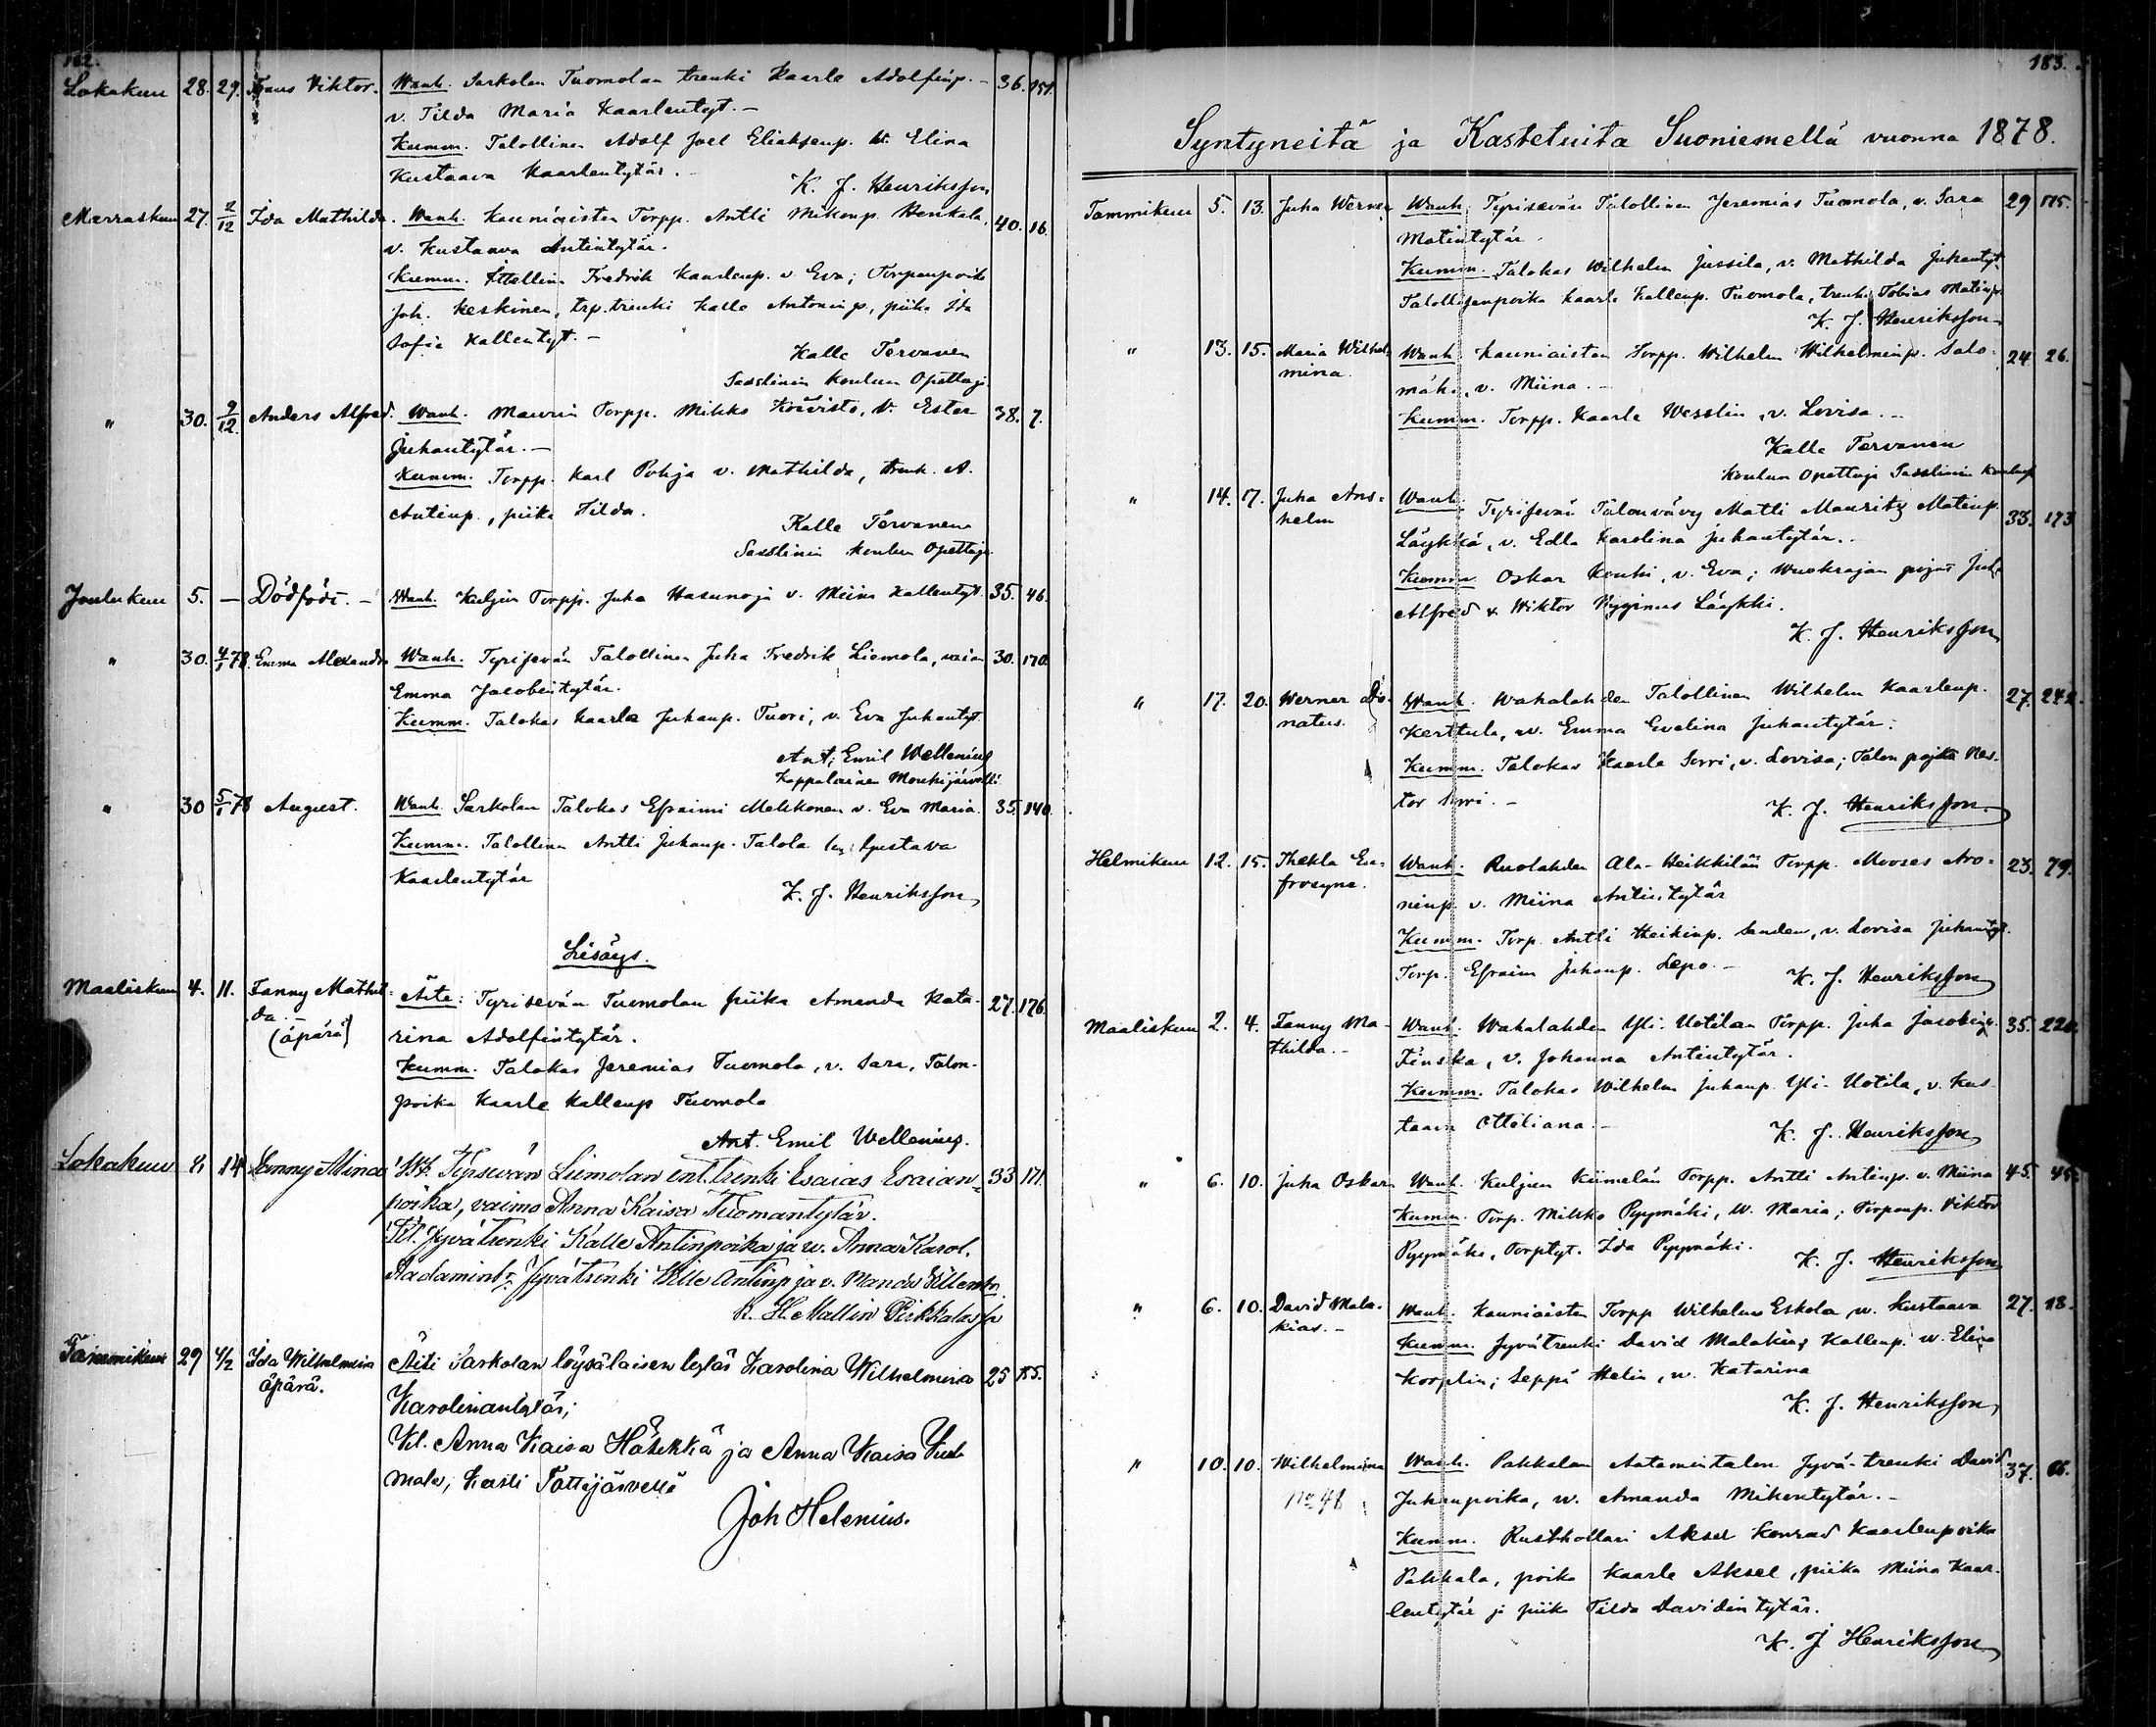 182.
Lokakuu 28. 29. Frans Viktor. Wanh. Sarkolan Tuomolan trenki Kaarle Adolfinp. – 36. 151.
v. Tilda Maria Kaarlentyt. –
Kumm. Talollinen Adolf Joel Eliaksenp. w. Elina
Kustaava Kaarlentytär. –
K. J. Henriksson
Marraskuu 27. 2/12 Ida Mathilda. Wanh. Kauniaisten Torpp. Antti Mikenp. Henkala, 40. 16.
v. Kustaava Antintytär.
Kumm. Itellinen Fredrik Kaarlenp. v. Eva; Torpanpoika
Joh. Keskinen, trp. trenki Kalle Antoninp., piika Ida
Sofia Kallentyt. –
Kalle Tervanen
Sasslinin koulun Opettaja
" 30. 9/12 Anders Alfred. Wanh. Maurin Torpp. Mikko Koivisto, v. Ester 38. 7.
Juhantytär. –
Kumm. Torpp. Karl Pohja v. Mathilda, trenk. A.
Antinp., piika Hilda.
Kalle Tervanen
Sasslinin koulun Opettaja.
Joulukuu 5. – Dödfödt. – Wanh. Kuljun Torpp. Juha Hasunoja v. Miina Kallentyt. 35. 46.
" 30. 4/1 78. Emma Alexandra Wanh. Tyrisevän Talollinen Juha Fredrik Liemola, vaimo 30. 170.
Emma Jacobintytär.
Kumm. Talokas Kaarle Juhanp. Tuori, v. Eva Juhantyt.
Ant. Emil Wellenius
Kappalainen Mouhijärvellä
" 30 5/1 78 August. Wanh. Sarkolan Talokas Efraimi Melkkonen v. Eva Maria. 35. 140.
Kumm. Talollinen Antti Juhanp. Talola Gustava
Kaarlentytär
K. J. Henriksson
Lisäys.
Maaliskuu 4. 11. Fanny Mathil- Äite: Tyrisevän Tuomolan piika Amanda Kata- 27. 176.
da. –
(äpärä) rina Adolfintytär.
Kumm. Talokas Jeremias Tuomola, v. Sara, Talon-
poika Kaarle Kallenp Tuomola
Ant. Emil Wellenius.
Lokakuu 8, 14 Fanny Miina Wt. Tyrsevän Liemolan ent. trenki Esaias Esaian- 33 171.
poika, vaimo Anna Kaisa Tuomantytär.
Kl. Jyvätrenki Kalle Antinpoika ja w. Anna Karol.
Aadamintr. Jyvätrenki Ville Antinp ja v. Manda Villentr.
K. H. Mallin Pirkkalassa
Tammikuu 29 4/2 Ida Wilhelmina Äiti Sarkolan löysäläisen leski Karolina Wilhelmina 25 155.
äpärä. Karolinantytär;
Kl. Anna Kaisa Hähkkä ja Anna Kaisa
mala, Kasti Tottijärvellä
Joh Helenius.
183.
Syntyneitä ja Kastetuita Suoniemellä vuonna 1878.
Tammikuu 5. 13. Juha Werner Wanh. Tyrisevän Talollinen Jeremias Tuomola, v. Sara 29 175.
Matintytär.
Kumm. Talokas Wilhelm Jussila, v. Mathilda Juhantyt.
Talollisenpoika Kaarle Kallenp. Tuomola, trenki Tobias Matinp.
K. J. Henriksson
" 13. 15. Maria Wilhel- Wanh. Kauniaisten Torpp. Wilhelm Wilhelminp. Salo- 24 26.
mina. mäki, v. Miina. –
Kumm. Torpp. Kaarle Wesslin, v. Lovisa. –
Kalle Tervanen
koulun Opettaja Sasslinin koulusa
" 14. 17. Juha Ans- Wanh. Tyrisevän Talonvävy Matti Mauritz Matinp. 33. 173
helm Läykkä, v. Edla Karolina Juhantytär. –
Kumm. Oskar Kouhi, v. Eva; Wuokraajan pojat Juha
Alfred & Wiktor Hyginus Läykki.
K. J. Henriksson
" 17. 20. Werner Do- Wanh. Wahalahden Talollinen Wilhelm Kaarlenp. 27. 242.
natus. Kerttula, w. Emma Evelina Juhantytär.
Kumm. Talokas Kaarle Sorri, v. Lovisa; Talon pojka Nes-
tor Sorri. –
K. J. Henriksson
Helmikuu 12. 15. Thekla Eu- Wanh. Kuolahden Ala-Heikkilän Torpp. Mooses Aro- 23. 79.
frosyne. ninp. v. Miina Antintytär
Kumm. Torp. Antti Heikinp. Sanden, v. Lovisa Juhantyt.
Torp. Efraim Juhanp. Lepo. –
K. J. Henriksson
Maaliskuu 2. 4. Fanny Ma- Wanh. Wahalahden Yli-Uotilan Torpp. Juha Jacobinp. 35. 220.
thilda. – Finska, v. Johanna Antintytär.
Kumm. Talokas Wilhelm Juhanp. Yli-Uotila, v. Kus-
taava Ottiliana. –
K. J. Henriksson
" 6. 10. Juha Oskar Wanh. Kuljun Kiimelän Torpp. Antti Antinp. v. Miina 45. 45.
Kumm. Torp. Mikko Pyymäki, w. Maria; Torpanp. Viktor
Pyymäki, Torptyt. Ida Pyymäki.
K. J. Henriksson
" 6. 10. David Mala- Wanh. Kauniaisten Torpp Wilhelm Eskola w. Kustaava 27. 18.
kias. – Kumm. Jyvätrenki David Malakias Kallenp. w. Elina
Korplin; Seppä Helin, w. Katarina
K. J. Henriksson
" 10. 10. Wilhelmina Wanh. Pakkalan Aatamintalon Jyvä-trenki David 37. 66.
No 48 Juhanpoika, w. Amanda Mikontytär. –
Kumm. Rusthollari Aksel Konrad Kaarlenpoika
Pakkala, poika Kaarle Aksel, piika Miina Kaar-
lentytär ja piika Tilda Davidintytär.
K. J Henriksson